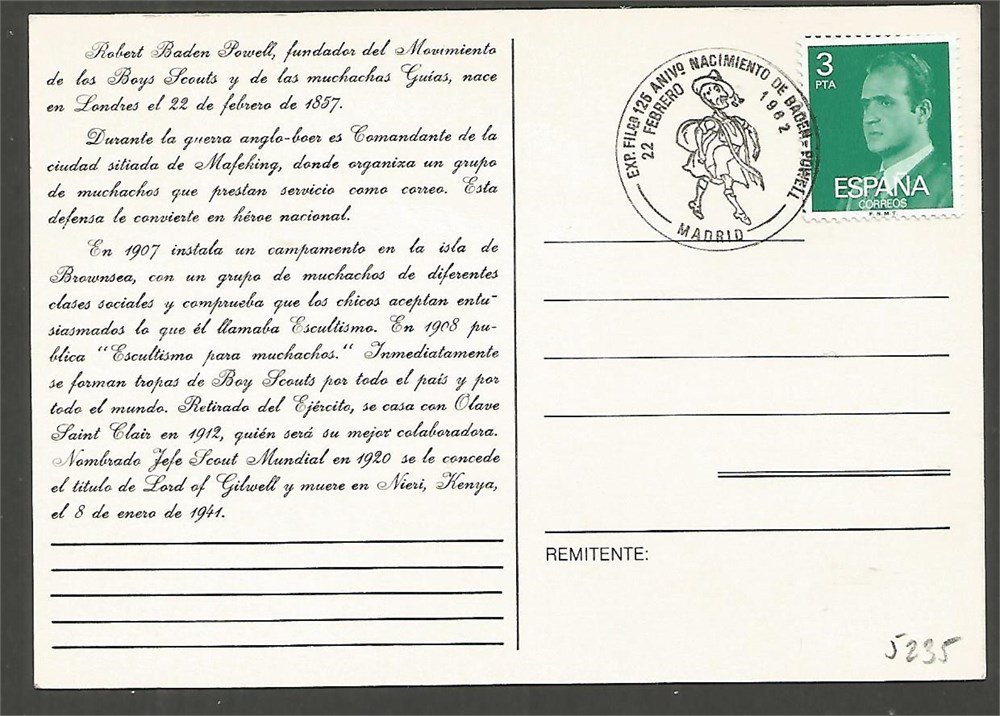 Robert Baden Powell, fundador del Movimiento
de los Boys Scouts y de las muchachas Guías, nace
en Londres el 22 de febrero de 1857.
Durante la guerra anglo-boer es Comandante de la
ciudad sitiada de Mafeking, donde organiza un grupo
de muchachos que prestan servicio como correo. Esta
defensa le convierte en héroe nacional.
En 1907 instala un campamento en la isla de
Brownsea, con un grupo de muchachos de diferentes
clases sociales y comprueba que los chicos aceptan entu-
siasmados lo que él llamaba Escultismo. En 1908 pu-
blica "Escultismo para muchachos." Inmediatamente
se forman tropas de Boy Scouts por todo el país y por
todo el mundo. Retirado del Ejército, se casa con Olave
Saint Clair en 1912, quién será su mejor colaboradora.
Nombrado Jefe Scout Mundial en 1920 se le concede
el título de Lord of Gilwell y muere en Nieri, Kenya,
el 8 de enero de 1941.
EXP. FILCA 125 ANIVº NACIMIENTO DE BADEN-POWELL
22 FEBRERO 1982
MADRID
3
PTA
ESPAÑA
CORREOS
F.N.M.T.
REMITENTE:
5235